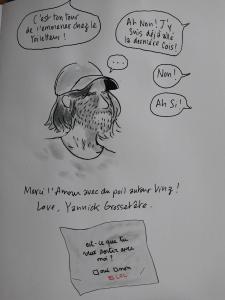 C'est ton tour
de l'emmener chez le
toiletteur !
Ah Non ! J'y
suis déjà allé
la dernière fois !
...
Non !
Ah Si !
Merci l'Amour avec du poil autour Vinz !
Love, Yannick Grossetête.
est-ce que tu
veux sortir avec
moi ?
oui non